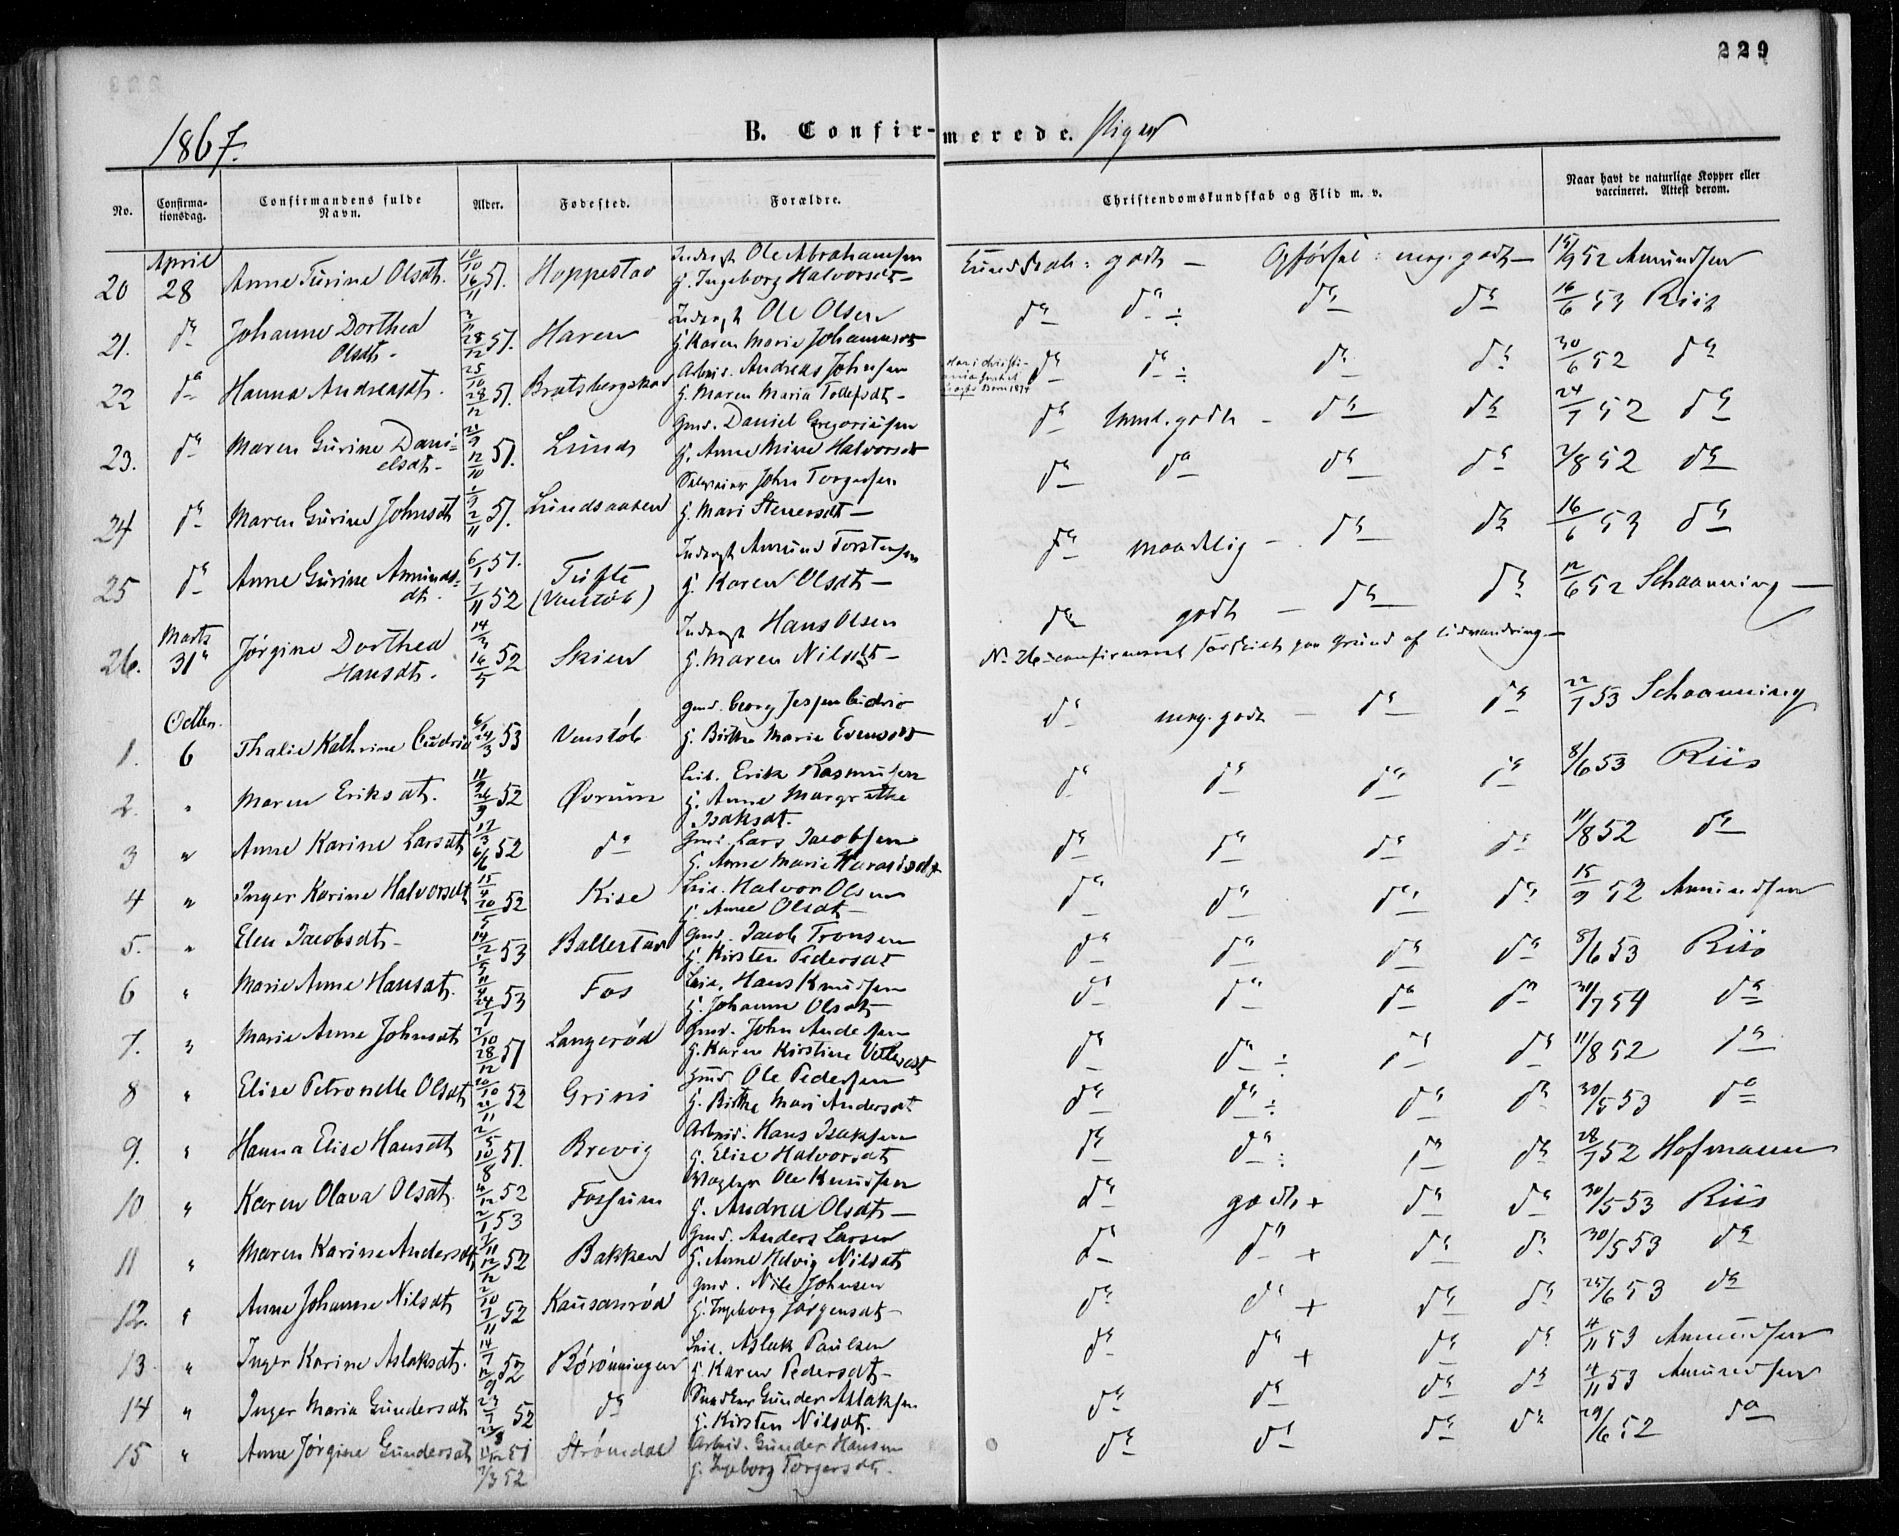 229
1867.
B. Confirmerede. Piger
No. Confirmationsdag. Confirmandens fulde Navn. Alder. Fødested. Forældre. Christendomskundskab og Flid m. v. Naar havt de naturlige Kopper eller vaccineret. Attest derom.
20 April 28 Anne Turine Olsdt. 16/11 51. Hoppestad Ole Abrahamsen G. Ingeborg Halvorsdt Kundskab: godt Opførsel: meg. godt 15/9 52 Amundsen
21. do Johanne Dorthea Olsdt. 28/12 51. Haren Ole Olsen G. Karen Marie Johannesdt do do ÷ do do 16/6 53 Riis
22 do Hanna Andreasdt. 25/10 28/12 51. Bratsbergskov Arbeid. Andreas Johnsen G. Maren Maria Tollefsdt do do ÷ do do 30/6 52 do
23. do Maren Gurine Danielsdt 12/10 51. Lunds Gmd. Daniel Gregoriusen G. Anne Mine Halvorsdt do temml. godt do do 24/7 52 do
24 do Maren Gurine Johnsdt 2/11 51. Lundsaasen John Torgersen G. Mari Steversdt do do do do 2/8 52 do
25 do Anne Gurine Amundsdt. 6/1 51. 1/11 52 Tufte (Venstøb) Amund Torstensen G. Karen Olsdt do maadelig do do 16/6 53 do
26. Marts 31 Jørgine Dorthea Hansdt. 14/3 16/5 52 Skien Hans Olsen G. Maren Nilsdt do godt do do 12/6 52 Schaanning
No 26 confirmeret særskilt paa Grund af Udvandring
1. Octbr. 6 Thalie Kathrine Cudrio 24/3 53 Venstøb Gmd. Georg Jespen Cudrio G. Birthe Marie Evensdt do meg. godt do do 22/7 53 Schaanning
2. " Maren Eriksdt. 26/9 52 Øvrum Leil. Erik Rasmusen G. Anne Margrethe Isaksdt. do do do do 8/6 53 Riis
3 " Anne Karine Larsdt 17/3 6/6 52 do Gmd. Lars Jacobsen G. Anne Marie do do do do 11/8 52 do
4 " Inger Karine Halvorsdt 15/4 20/5 52 Kise Leil. Halvor Olsen G. Anne Olsdt do do do do 15/9 52 Amundsen
5. " Elen Jacobsdt 14/2 53 Ballestad Gmd. Jacob Tronsen G. Kirsten Pedersdt do do do do 8/6 53 Riis
6 " Marie Anne Hansdt. 24/7 53 Fos Leil. Hans Knudsen G. Johanne Olsdt do do do do 30/7 54 do
7. " Marie Anne Johnsdt 28/12 51 Langerød Gmd. John Andersen G. Karen Kirstine do do ÷ do do 11/8 52 do
8 " Elise Petronelle Olsdt 52 Grini Gmd Ole Pedersen G. Birthe Mari Andersdt do do ÷ do do 30/5 53 do
9. " Hanna Elise Hansdt 2/5 10/8 51. Brevig Arbeid. Hans Isaksen G. Elise Halvorsdt do do ÷ do do 28/7 52 Hofmann
10 " Karen Olava Olsdt 4/12 52 2/1 53 Fossum Ole Knudsen G. Andrea Olsdt do godt + do do 30/5 53 Riis
11 " Maren Karine Andersdt 12/12 52 Bakken Gmd. Anders Larsen G. Anne Helvig Nilsdt do do + do do 30/5 53 do
12. " Anne Johanne Nilsdt 2/10 7/11 52 Kausanrød Gmd. Nils Johnsen G. Ingeborg Jørgensdt do do + do do 25/6 53 do
13. " Inger Karine Aslaksdt. 14/7 12/9 52 Børønningen Leil. Aslak Paulsen G. Karen Pedersdt do do + do do 4/11 53 Amundsen
14 " Inger Maria Gundersdt 23/7 52 do Gunder Aslaksen G. Kirsten Nilsdt. do do do do 4/11 53 Amundsen
15 " Anne Jørgine Gundersdt 51 7/3 52 Strømdal Arbeid. Gunder Hansen G. Ingeborg Torgersdt. do do do do 29/6 52 do